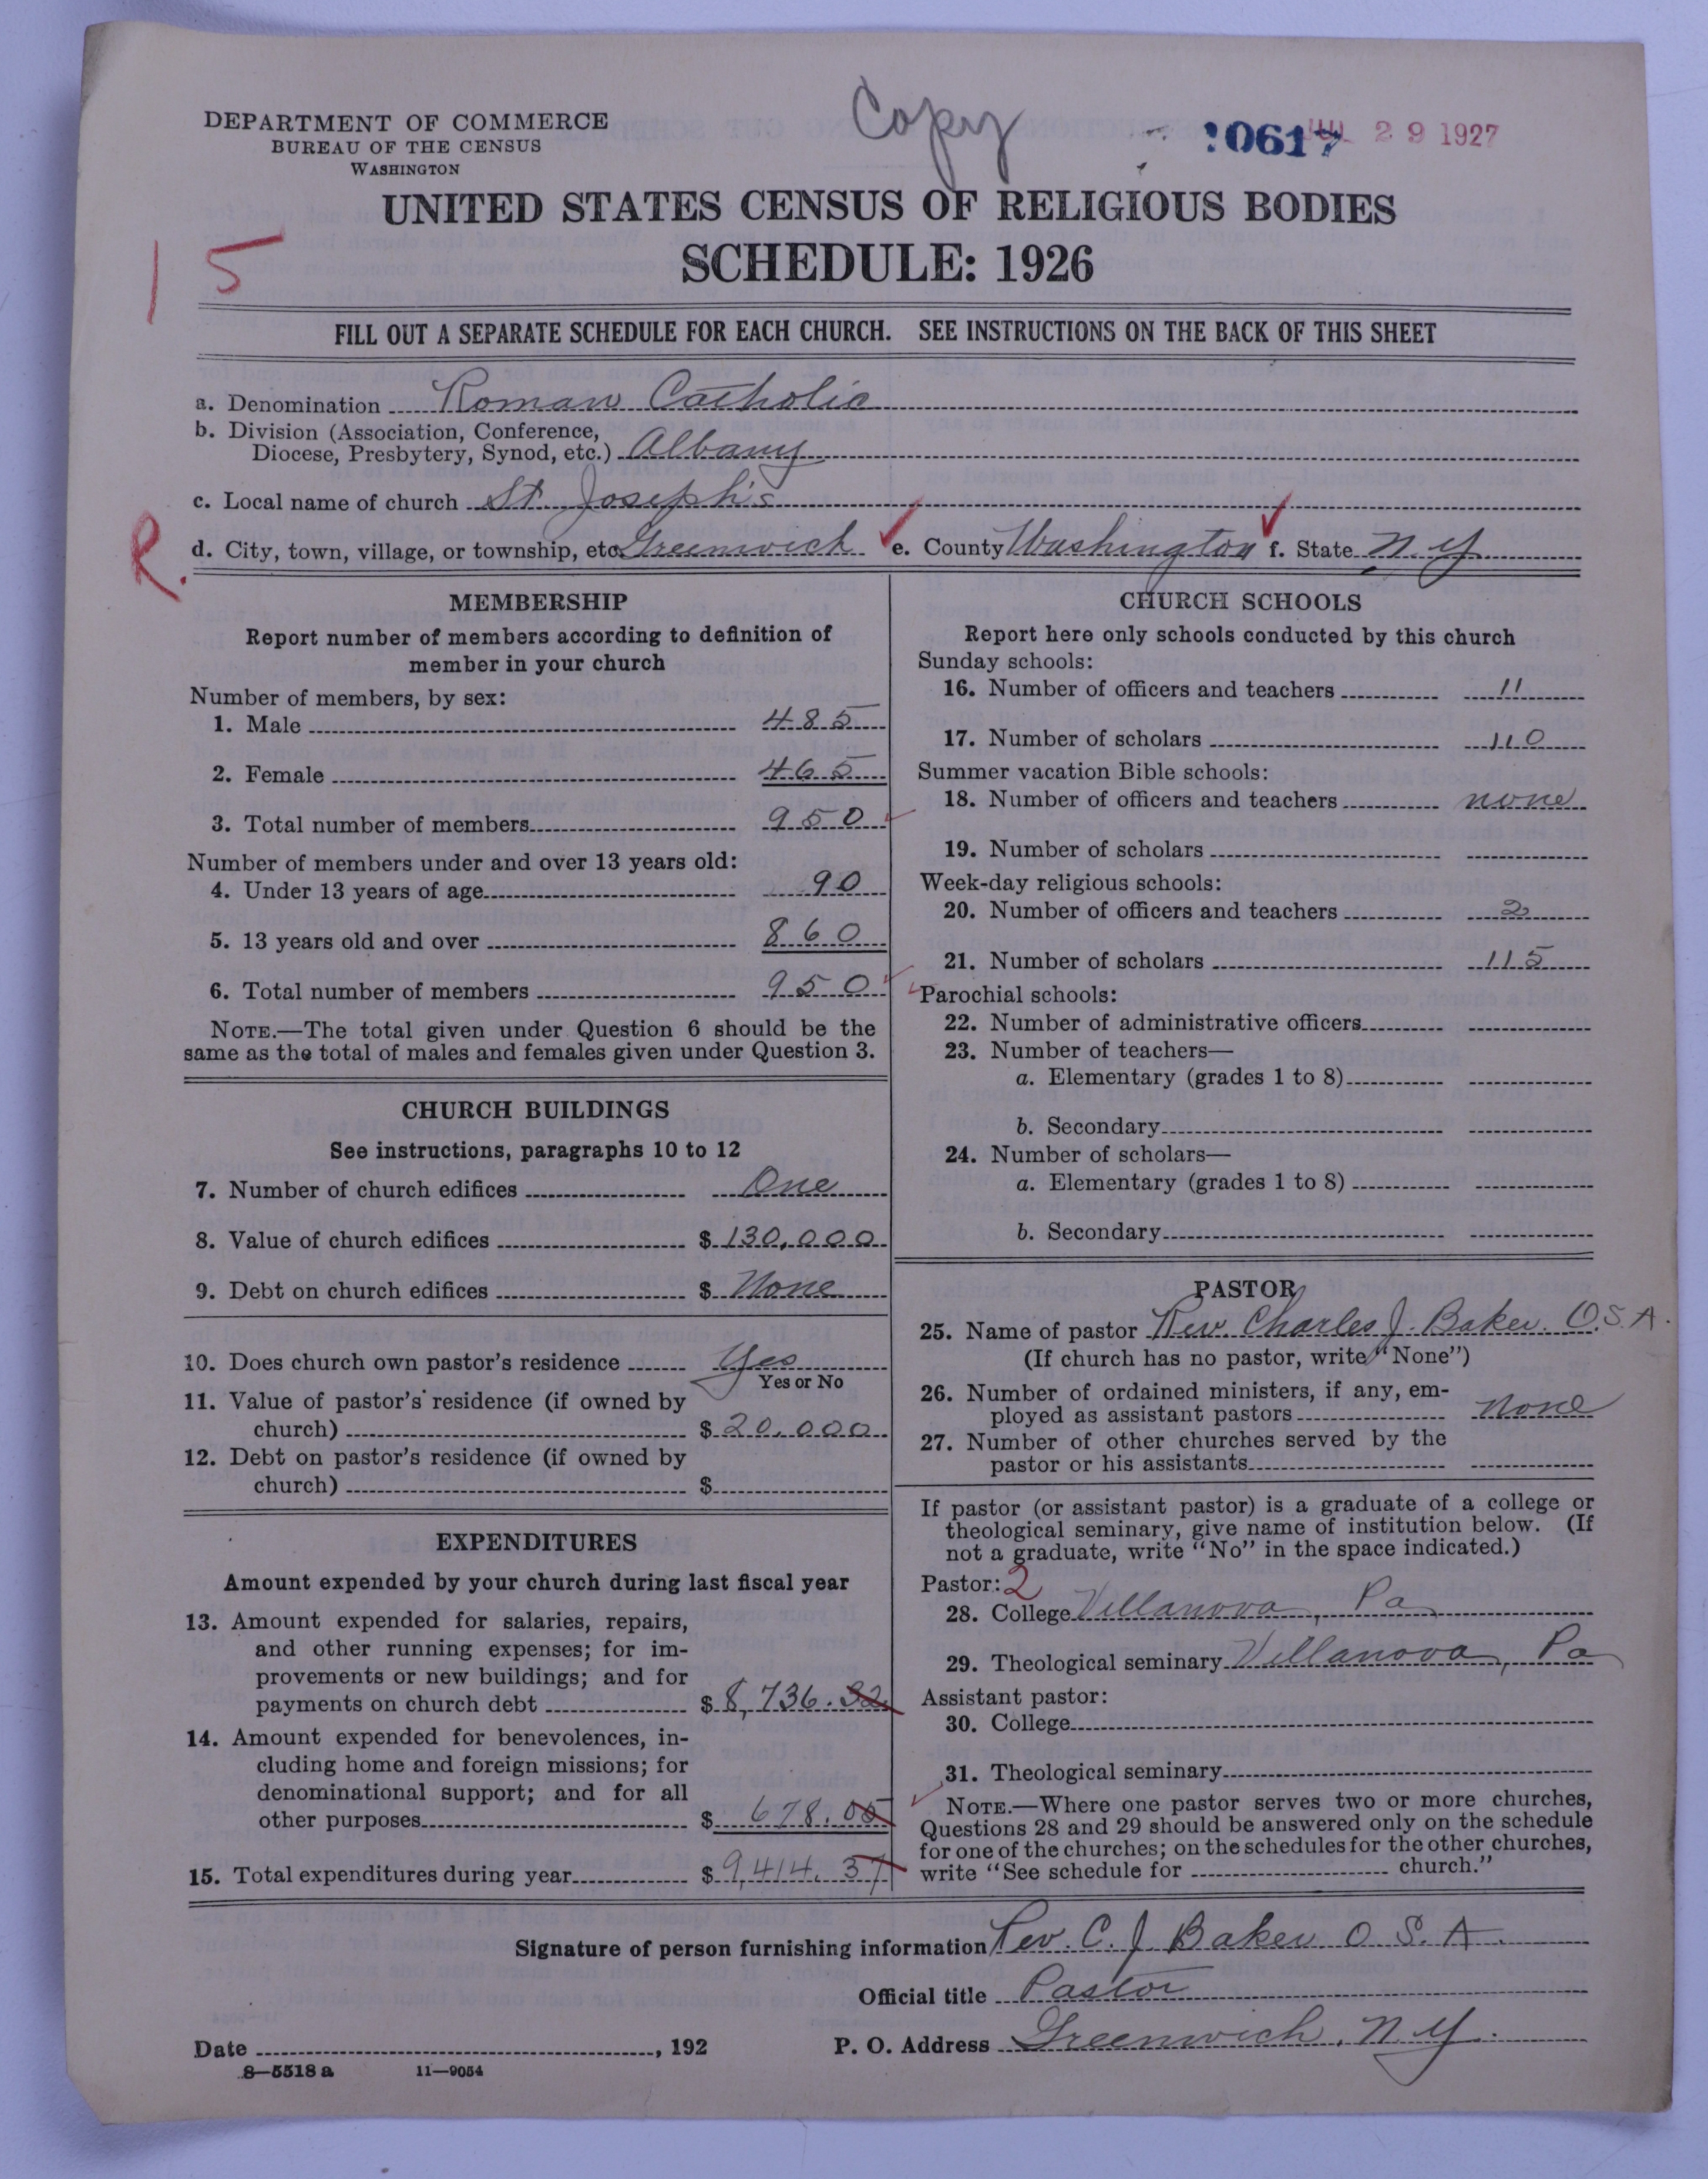 Copy
DEPARTMENT OF COMMERCE
BUREAU OF THE CENSUS
WASHINGTON
0617 JUL 29 1927
UNITED STATES CENSUS OF RELIGIOUS BODIES
SCHEDULE: 1926
15
FILL OUT A SEPARATE SCHEDULE FOR EACH CHURCH. SEE INSTRUCTIONS ON THE BACK OF THIS SHEET
a. Denomination Roman Catholic
b. Division (Association, Conference,
Diocese, Presbytery, Synod, etc.) Albany
c. Local name of church St Joseph's
R.
d. City, town, village, or township, etc. Greenwich e. County Washington f. State N.Y.
MEMBERSHIP
Report number of members according to definition of
member in your church
Number of members, by sex:
1. Male 485
2. Female 465
3. Total number of members 950
Number of members under and over 13 years old:
4. Under 13 years of age 90
5. 13 years old and over 860
6. Total number of members 950
NOTE.—The total given under Question 6 should be the
same as the total of males and females given under Question 3.
CHURCH BUILDINGS
See instructions, paragraphs 10 to 12
7. Number of church edifices One
8. Value of church edifices $ 130,000
9. Debt on church edifices $ None
10. Does church own pastor's residence Yes
Yes or No
11. Value of pastor's residence (if owned by
church) $ 20,000
12. Debt on pastor's residence (if owned by
church) $
EXPENDITURES
Amount expended by your church during last fiscal year
13. Amount expended for salaries, repairs,
and other running expenses; for im-
provements or new buildings; and for
payments on church debt $ 8,736.32
14. Amount expended for benevolences, in-
cluding home and foreign missions; for
denominational support; and for all
other purposes $ 678.05
15. Total expenditures during year $ 9,414.37
CHURCH SCHOOLS
Report here only schools conducted by this church
Sunday schools:
16. Number of officers and teachers 11
17. Number of scholars 110
Summer vacation Bible schools:
18. Number of officers and teachers none
19. Number of scholars
Week-day religious schools:
20. Number of officers and teachers 2
21. Number of scholars 115
Parochial schools:
22. Number of administrative officers
23. Number of teachers—
a. Elementary (grades 1 to 8)
b. Secondary
24. Number of scholars—
a. Elementary (grades 1 to 8)
b. Secondary
PASTOR
25. Name of pastor Rev. Charles J. Baker. O.S.A.
(If church has no pastor, write "None")
26. Number of ordained ministers, if any, em-
ployed as assistant pastors none
27. Number of other churches served by the
pastor or his assistants
If pastor (or assistant pastor) is a graduate of a college or
theological seminary, give name of institution below. (If
not a graduate, write "No" in the space indicated.)
Pastor: 2
28. College Villanova, Pa
29. Theological seminary Villanova, Pa
Assistant pastor:
30. College
31. Theological seminary
NOTE.—Where one pastor serves two or more churches,
Questions 28 and 29 should be answered only on the schedule
for one of the churches; on the schedules for the other churches,
write "See schedule for church."
Signature of person furnishing information Rev. C. J. Baker O.S.A.
Official title Pastor
Date , 192 P. O. Address Greenwich, N.Y.
8—5518 a 11—9054